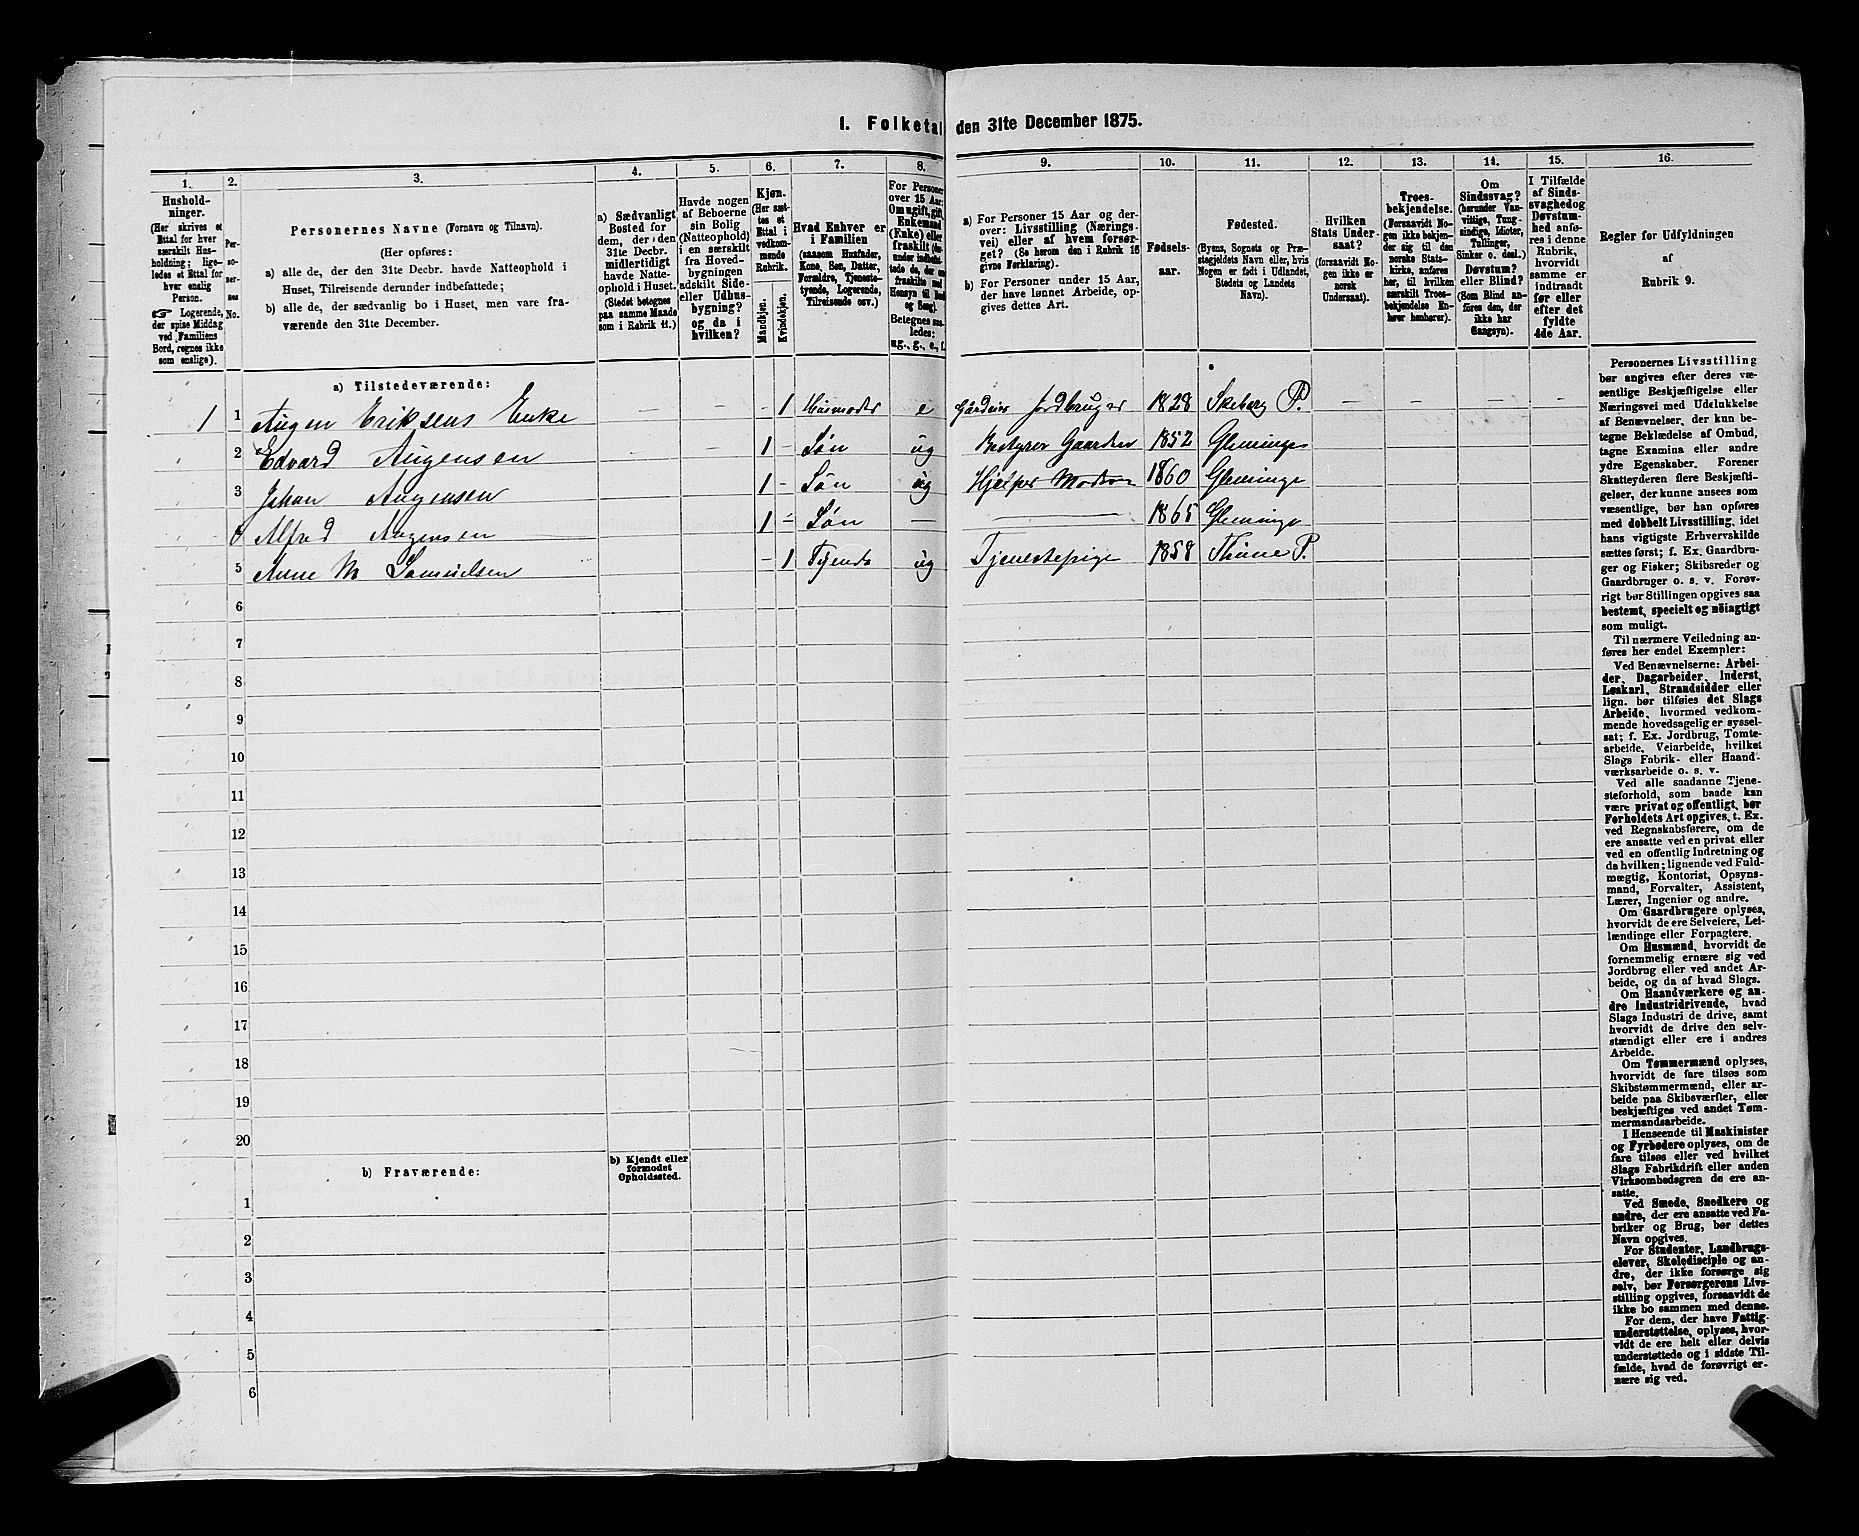 I. Folketal den 31te December 1875.
1. 2. 3. 4. 5. 6. 7. 8. 9. 10. 11. 12. 13. 14. 15. 16.
Hushold-
ninger.
(Her skrives et
Ettal for hver
særskilt Hus-
holdning; lige-
ledes et Ettal for
hver enslig
Person.
☞ Logerende,
der spise Middag
ved Familiens
Bord, regnes ikke
som enslige).
Per-
so-
ner-
nes
No.
Personernes Navne (Fornavn og Tilnavn).
(Her opføres:
a) alle de, der den 31te Decbr. havde Natteophold i
Huset, Tilreisende derunder indbefattede;
b) alle de, der sædvanlig bo i Huset, men vare fra-
værende den 31te December.
a) Sædvanligt
Bosted for
dem, der den
31te Decbr.
midlertidigt
havde Natte-
ophold i Huset.
(Stedet betegnes
paa samme Maade
som i Rubrik 11.)
Havde nogen
af Beboerne
sin Bolig
(Natteophold)
i en særskilt
fra Hoved-
bygningen
adskilt Side-
eller Udhus-
bygning?
og da i
hvilken?
Kjøn.
(Her sæt-
tes et
Ettal i
vedkom-
mende
Rubrik.
Mandkjøn.
Kvindekjøn.
Hvad Enhver er
i Familien
(saasom Husfader,
Kone, Søn, Datter,
Forældre, Tjeneste-
tyende, Logerende,
Tilreisende osv.)
For Personer
over 15 Aar:
Om ugift, gift,
Enkemand
(Enke) eller
fraskilt
Betegnes saa-
ledes:
ug., g., e., f.
a) For Personer 15 Aar og der-
over: Livsstilling (Nærings-
vei) eller af hvem forsør-
get? (Se herom den i Rubrik 16
givne Forklaring).
b) For Personer under 15 Aar,
der have lønnet Arbeide, op-
gives dettes Art.
Fødsels-
aar.
Fødested.
(Byens, Sognets og Præ-
stegjeldets Navn eller, hvis
Nogen er født i Udlandet,
Stedets og Landets
Navn).
Hvilken
Stats Under-
saat?
(forsaavidt No-
gen ikke er
norsk
Undersaat).
Troes-
bekjendelse.
(Forsaavidt No-
gen ikke bekjen-
der sig til den
norske Stats-
kirke, anføres
her, til hvilken
særskilt Troes-
bekjendelse En-
hver henhører).
Om
Sindssvag?
(herunder Van-
vittige, Tung-
sindige, Idioter,
Tullinger,
Sinker o. desl.)
Døvstum?
eller Blind?
(Som Blind an-
føres den, der
ikke har
Gangsyn).
I Tilfælde
af Sinds-
svaghed og
Døvstum-
hed anfø-
res i denne
Rubrik,
hvorvidt
samme er
indtraadt
før eller
efter det
fyldte
4de Aar.
Regler for Udfyldningen
af
Rubrik 9.
a) Tilstedeværende:
1 1 Augen Eriksens Enke — — - 1 Husmoder e Jordbruger 1828 Skeberg P.
2 Edvard Augensen - - 1 - Søn ug Bestyrer Gaarden 1852 Gleminge
3 Johan Augensen 1 - Søn ug Hjelper Moderen 1860 Gleminge
Alfred Augensen 1 - Søn — — 1865 Gleminge
5 Anne M Samuelsen - 1 Tyende ug Tjenestepige 1858 Thune P.
6
7
8
9
10
11
12
13
14
15
16
17
18
19
20
b) Fraværende:
b) Kjendt eller
formodet
Opholdssted.
1
2
3
4
5
6
Personernes Livsstilling
bør angives efter deres væ-
sentlige Beskjæftigelse eller
Næringsvei med Udelukkelse
af Benævnelser, der kun be-
tegne Beklædelse af Ombud,
tagne Examina eller andre
ydre Egenskaber. Forener
Skatteyderen flere Beskjæfti-
gelser, der kunne ansees som
væsentlige, bør han opføres
med dobbelt Livsstilling, idet
hans vigtigste Erhvervskilde
sættes først; f. Ex. Gaardbru-
ger og Fisker; Skibsreder og
Gaardbruger o. s. v. Forøv-
rigt bør Stillingen opgives saa
bestemt, specielt og nöiagtigt
som muligt.
Til nærmere Veiledning an-
føres her endel Exempler:
Ved Benævnelserne: Arbei-
der, Dagarbeider, Inderst,
Løskarl, Strandsidder eller
lign. bør tilføies det Slags
Arbeide, hvormed vedkom-
mende hovedsagelig er syssel-
sat; f. Ex. Jordbrug, Tomte-
arbeide, Veiarbeide, hvilket
Slags Fabrik- eller Haand-
værksarbeide o. s. v.
Ved alle saadanne Tjene-
steforhold, som baade kan
være privat og offentligt, bør
Forholdets Art opgives, t. Ex.
ved Regnskabsførere, om de
ere ansatte ved en privat eller
ved en offentlig Indretning og
da hvilken; lignende ved Fuld-
mægtig, Kontorist, Opsyns-
mand, Forvalter, Assistent,
Lærer, Ingeniør og andre.
Om Gaardbrugere oplyses,
hvorvidt de ere Selveiere, Lei-
lændinge eller Forpagtere.
Om Husmænd, hvorvidt de
fornemmelig ernære sig ved
Jordbrug eller ved andet Ar-
beide, og da af hvad Slags.
Om Haandværkere og an-
dre Industridrivende, hvad
Slags Industri de drive, samt
hvorvidt de drive den selv-
stændigt eller ere i andres
Arbeide.
Om Tømmermænd oplyses,
hvorvidt de fare tilsøs som
Skibstømmermænd, eller ar-
beide paa Skibsværfter, eller
beskjæftiges ved andet Tøm-
mermandsarbeide.
I Henseende til Maskinister
og Fyrbødere oplyses, om de
fare tilsøs eller ved hvilket
Slags Fabrikdrift eller anden
Virksomhedsgren de ere an-
satte.
Ved Smede, Snedkere og
andre, der ere ansatte ved Fa-
briker og Brug, bør dettes
Navn opgives.
For Studenter, Landbrugs-
elever, Skoledisciple og an-
dre, der ikke forsørge sig
selv, bør Forsørgerens Livs-
stilling opgives, forsaavidt de
ikke bo sammen med denne.
For dem, der have Fattig-
understøttelse, oplyses, hvor-
vidt de ere helt eller delvis
understøttede og i sidste Til-
fælde, hvad de forøvrigt er-
nære sig ved.